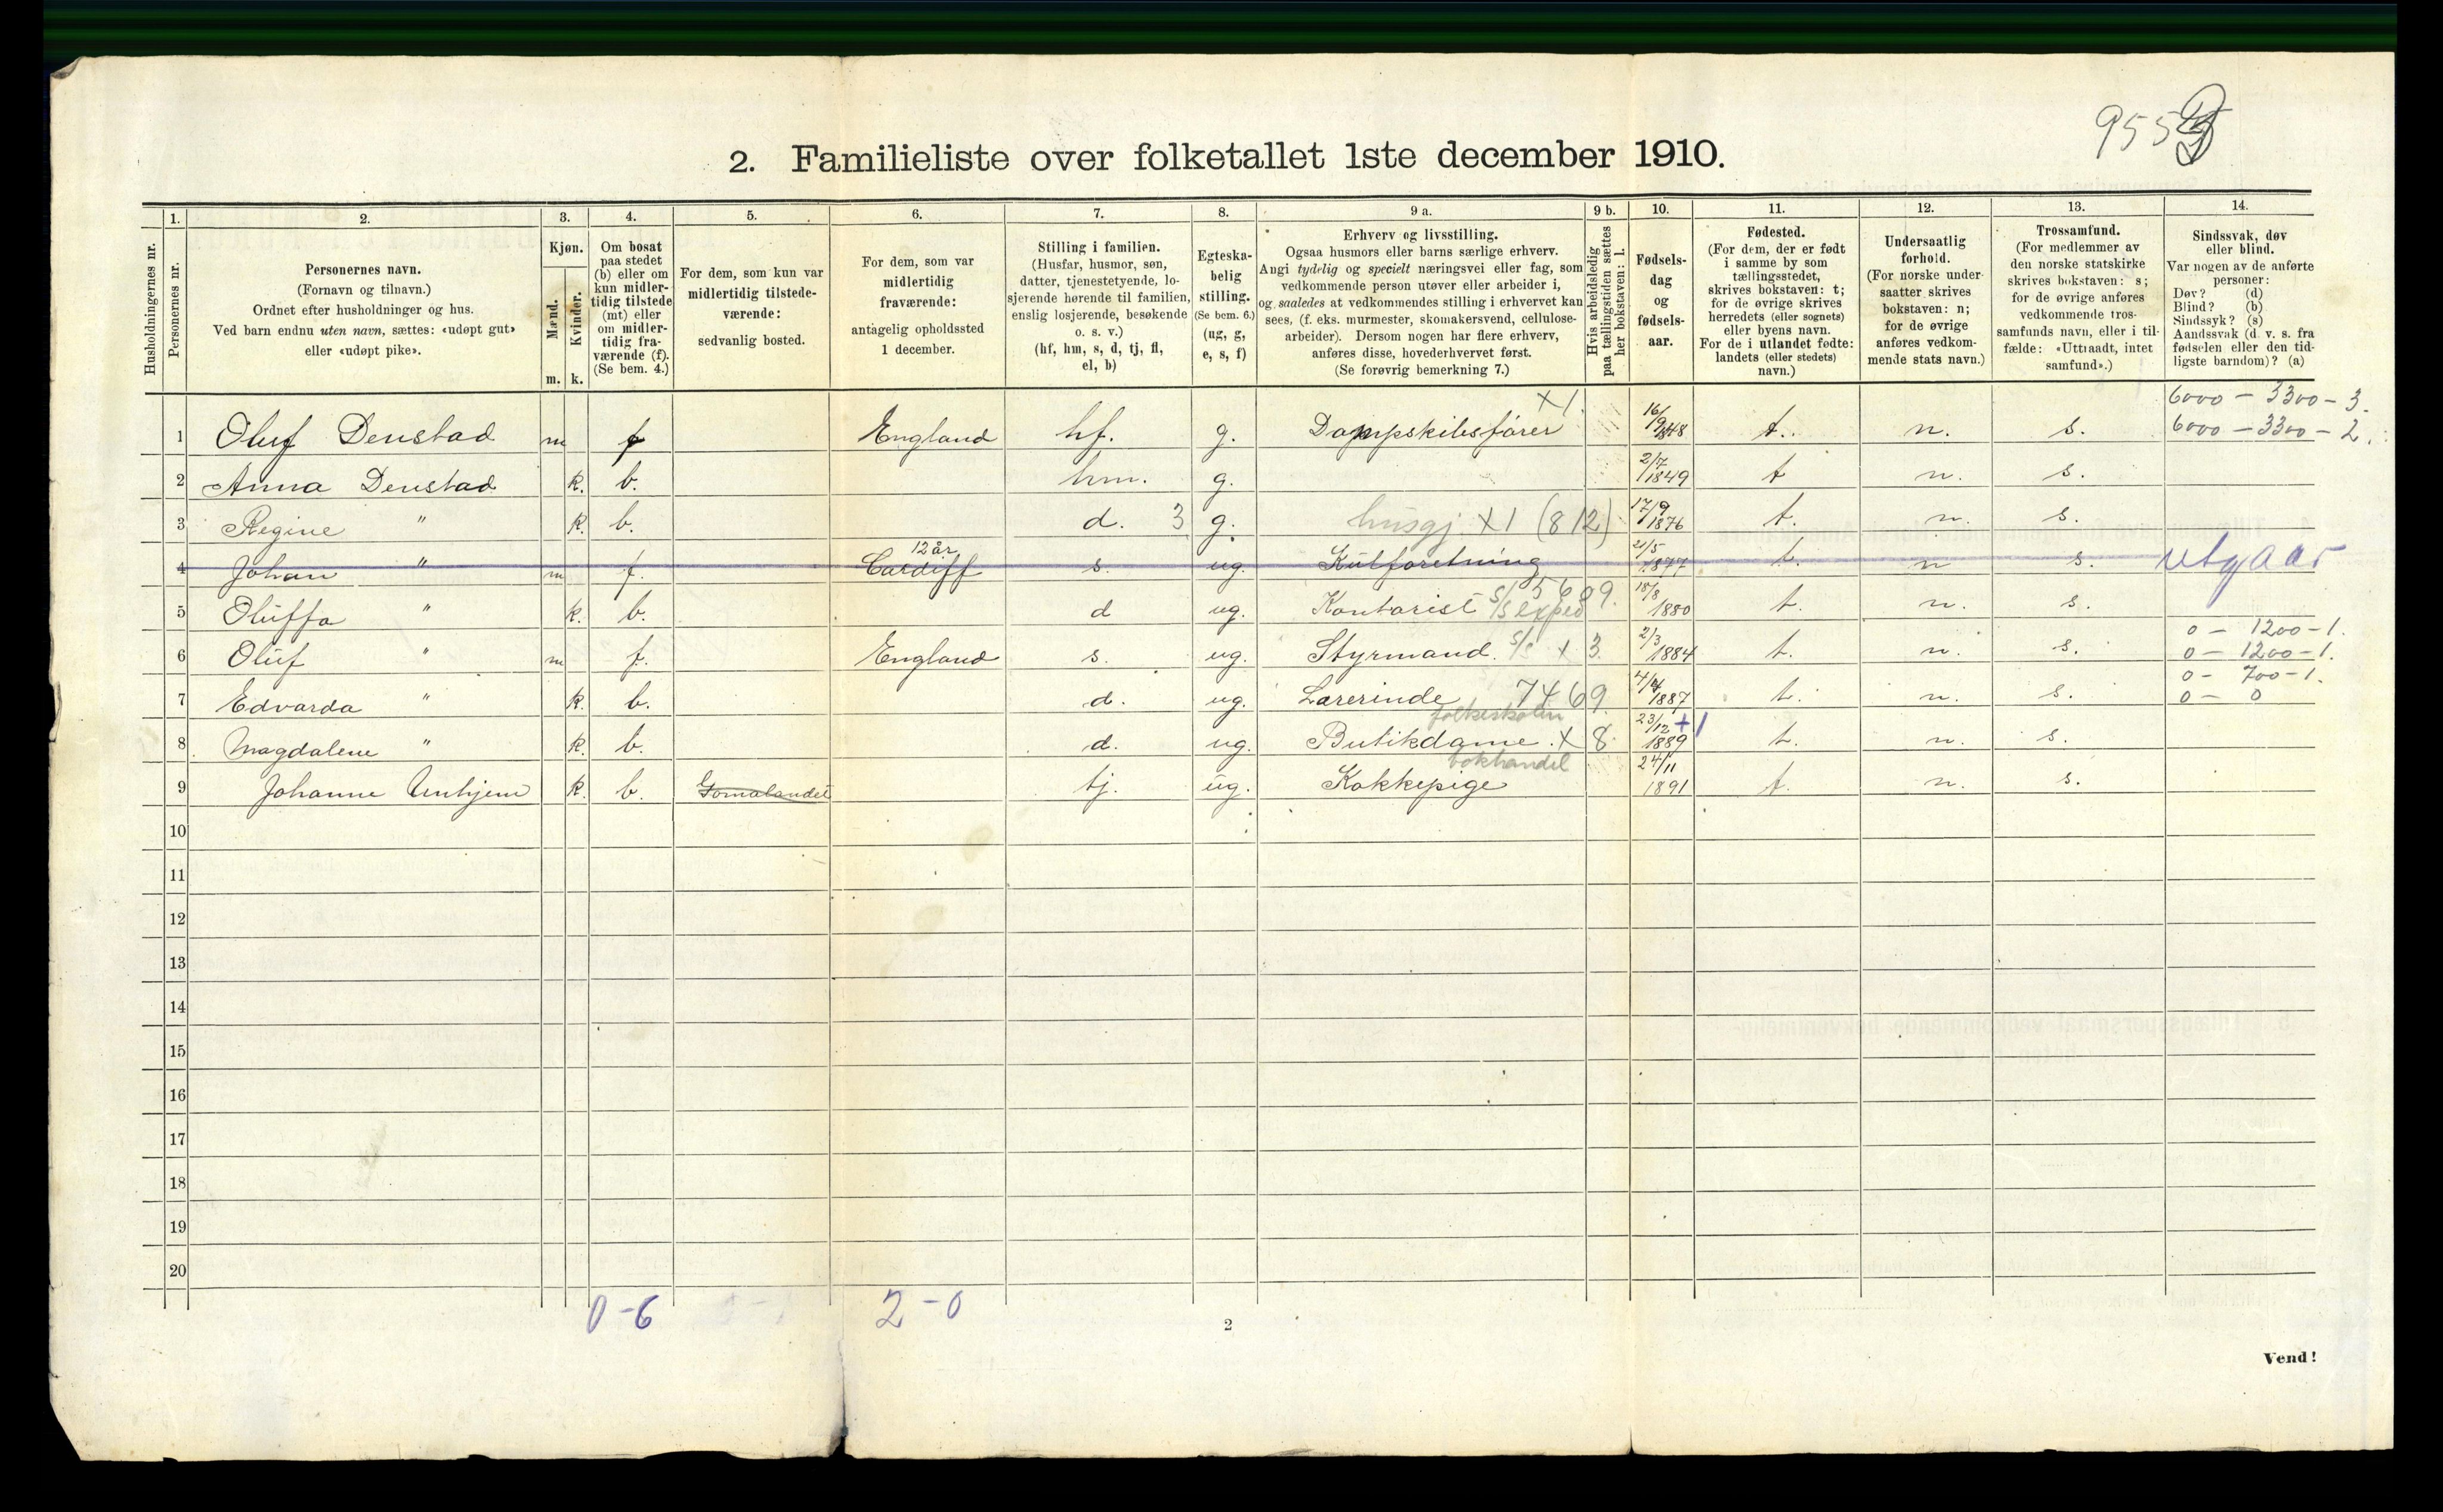 955
2. Familieliste over folketallet 1ste december 1910.
Husholdningernes nr.
1. Personernes nr.
2. Personernes navn. (Fornavn og tilnavn.) Ordnet efter husholdninger og hus. Ved barn endnu uten navn, sættes: «udøpt gut» eller «udøpt pike».
3. Kjøn. Mænd. m. Kvinder. k.
4. Om bosat paa stedet (b) eller om kun midlertidig tilstede (mt) eller om midlertidig fraværende (f). (Se bem. 4.)
5. For dem, som kun var midlertidig tilstedeværende: sedvanlig bosted.
6. For dem, som var midlertidig fraværende: antagelig opholdssted 1 december.
7. Stilling i familien. (Husfar, husmor, søn, datter, tjenestetyende, losjerende hørende til familien, enslig losjerende, besøkende o. s. v.) (hf, hm, s, d, tj, fl, el, b)
8. Egteskabelig stilling. (Se bem. 6.) (ug, g, e, s, f)
9 a. Erhverv og livsstilling. Ogsaa husmors eller barns særlige erhverv. Angi tydelig og specielt næringsvei eller fag, som vedkommende person utøver eller arbeider i, og saaledes at vedkommendes stilling i erhvervet kan sees, (f. eks. murmester, skomakersvend, cellulosearbeider). Dersom nogen har flere erhverv, anføres disse, hovederhvervet først. (Se forøvrig bemerkning 7.)
9 b. Hvis arbeidsledig paa tællingstiden sættes her bokstaven: l.
10. Fødselsdag og fødselsaar.
11. Fødested. (For dem, der er født i samme by som tællingsstedet, skrives bokstaven: t; for de øvrige skrives herredets (eller sognets) eller byens navn. For de i utlandet fødte: landets (eller stedets) navn.)
12. Undersaatlig forhold. (For norske undersaatter skrives bokstaven: n; for de øvrige anføres vedkommende stats navn.)
13. Trossamfund. (For medlemmer av den norske statskirke skrives bokstaven: s; for de øvrige anføres vedkommende trossamfunds navn, eller i tilfælde: «Uttraadt, intet samfund».)
14. Sindssvak, døv eller blind. Var nogen av de anførte personer: Døv? (d) Blind? (b) Sindssyk? (s) Aandssvak (d. v. s. fra fødselen eller den tidligste barndom)? (a)
6000 - 3300 - 3.
1 Oluf Denstad m f England hf. g. Dampskibsfører X1. 16/9 1848 t. n. s. 6000 - 3300 - 2.
2 Anna Denstad k. b. hm. g. 2/7 1849 t n. s.
3 Regine " k. b. d. 3 g. husgj. X1 (812) 17/9 1876 t. n. s.
4 Johan " m f. 12 år Cardiff s. ug. Kulforetning 21/5 1877 t. n s. utgaar
5 Oluffa " k. b. d ug. Kontorist s/s exped 5689. 18/8 1880 t. n. s.
0 - 1200 - 1.
6 Oluf " m f. England s. ug. Styrmand. s/s x 3. 2/3 1884 t. n. s. 0 - 1200 - 1.
0 - 700 - 1.
7 Edvarda " k. b. d. ug. Lærerinde folkeskolen 7469. 4/4 1887 t. n. s. 0 - 0
8 Magdalene " k. b. d. ug. Butikdame. bokhandel X 8. 23/12 1889 +1 t. n. s.
9 Johanne Unhjem k. b. Gomalandet tj. ug. Kokkepige 24/11 1891 t. n. s.
10
11
12
13
14
15
16
17
18
19
20
0 - 6 2 - 0
2
Vend!